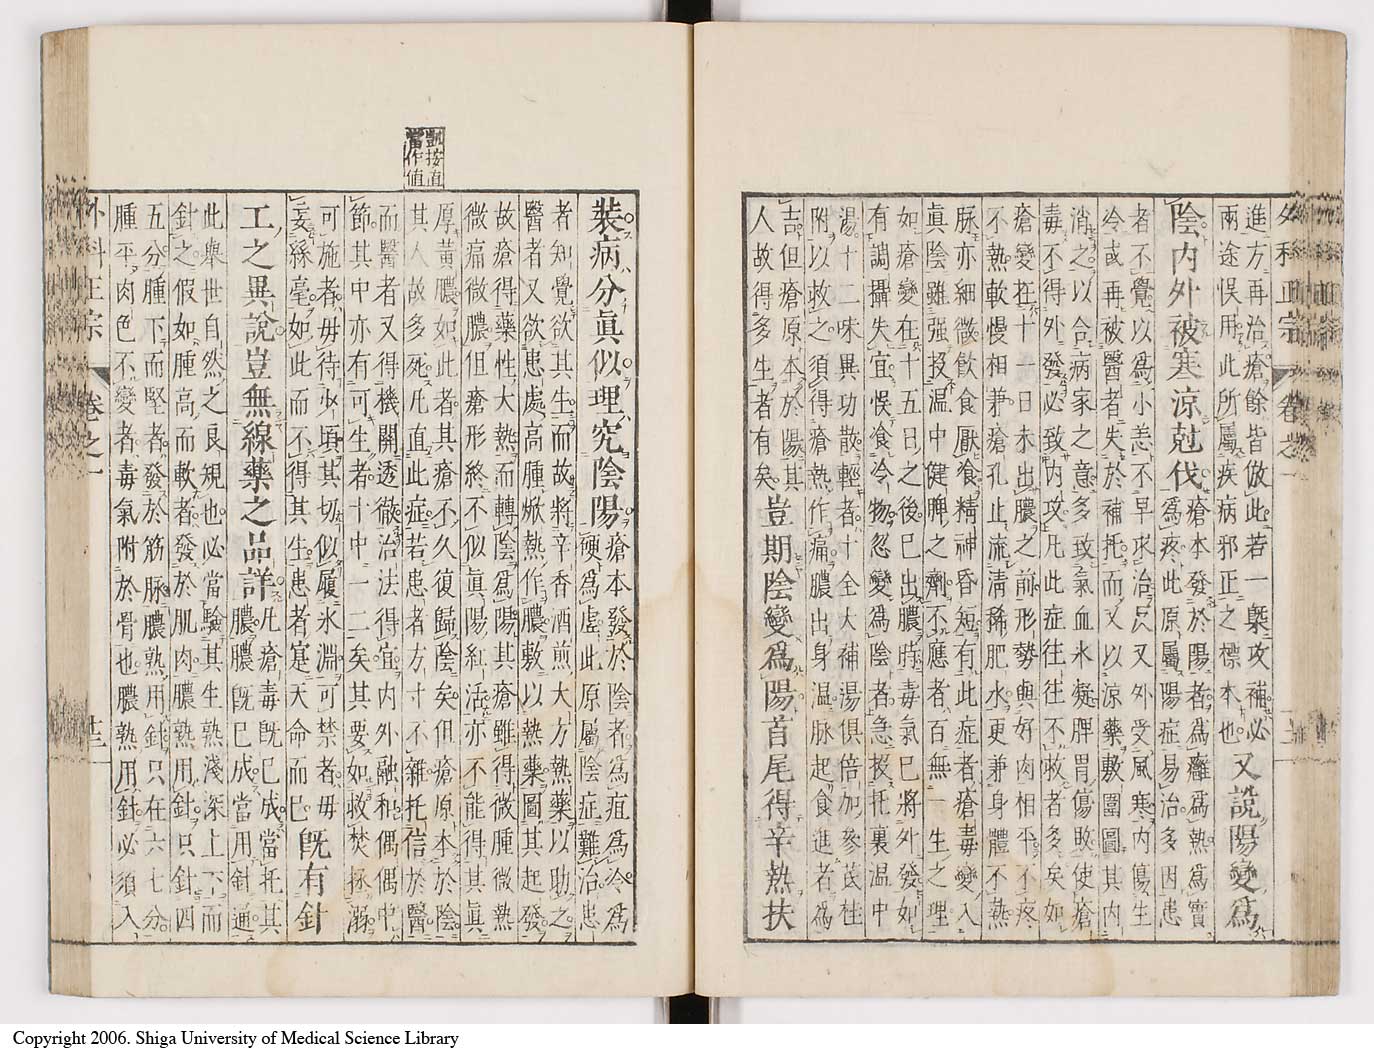 外科正宗 卷之一
進方再治瘡餘皆倣此若一槩攻補必
兩途悮用此所屬疾病邪正之標本也
又説陽變爲
陰内外被寒涼尅伐
瘡本發於陽者爲癰爲熱爲實
爲疼此原屬陽症易治多因患
者不覺以爲小恙不早求治只又外受風寒内傷生
冷或再被醫者失於補托而又以涼藥敷圍圖其内
消之以合病家之意多致氣血氷凝脾胃傷敗使瘡
毒不得外發必致内攻凡此症往往不救者多矣如
瘡變在十一日未出膿之前形勢與好肉相平不疼
不熱軟慢相兼瘡孔止流清稀肥水更兼身體不熱
脉亦細微飲食厭食精神昏短有此症者瘡毒變入
眞陰雖强投温中健脾之劑不應者百無一生之理
如瘡變在十五日之後已出膿時毒氣已將外發如
有調攝失宜悮食冷物忽變爲陰者急投托裏温中
湯十二味異功散輕者十全大補湯俱倍加參芪桂
附以救之須得瘡熱作痛膿出身温脉起食進者爲
吉但瘡原本於陽其
人故得多生者有矣
豈期陰變爲陽首尾得辛熱扶
裝病分眞似理究陰陽
瘡本發於陰者爲疽爲冷爲
硬爲虛此原屬陰症難治患
者知覺欲其生而故將辛香酒煎大方熱藥以助之
醫者又欲患處高腫焮熱作膿敷以熱藥圖其起發
故瘡得藥性大熱而轉陰爲陽其瘡雖得微腫微熱
微痛微膿但瘡形終不似眞陽紅活亦不能得其眞
厚黃膿如此者其瘡不久復歸陰矣但瘡原本於陰
其人故多死凡直此症若患者方寸不雜托信於醫
凱按直
當作值
而醫者又得機關透徹治法得宜内外融和偶偶中
節其中亦有可生者十中一二矣其要如救焚拯溺
可施者毋待少頃其切似履氷淵可禁者毋
妄絲毫如此而不得其生患者寔天命而已
既有針
工之異說豈無線藥之品詳
凡瘡毒既已成當托其
膿膿既已成當用針通
此舉世自然之良規也必當驗其生熟淺深上下而
針之假如腫高而軟者發於肌肉膿熟用針只針四
五分腫下而堅者發於筋脉膿熟用針只在六七分
腫平肉色不變者毒氣附於骨也膿熟用針必須入
外科正宗 卷之一 十三
Copyright 2006. Shiga University of Medical Science Library